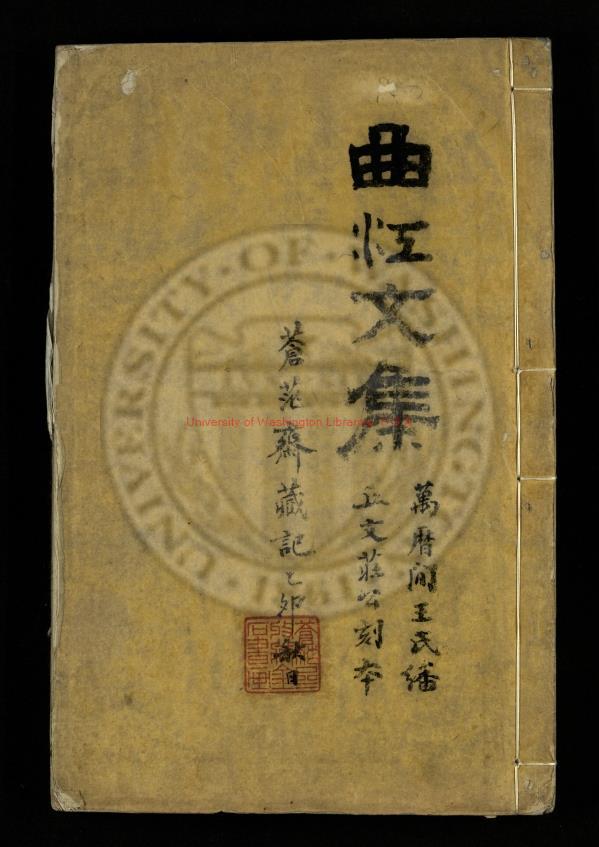 曲江文集
萬曆間王氏繙
丘文莊公刻本
蒼茫齋藏記乙卯秋日
UNIVERSITY OF WASHINGTON
1861
University of Washington Libraries